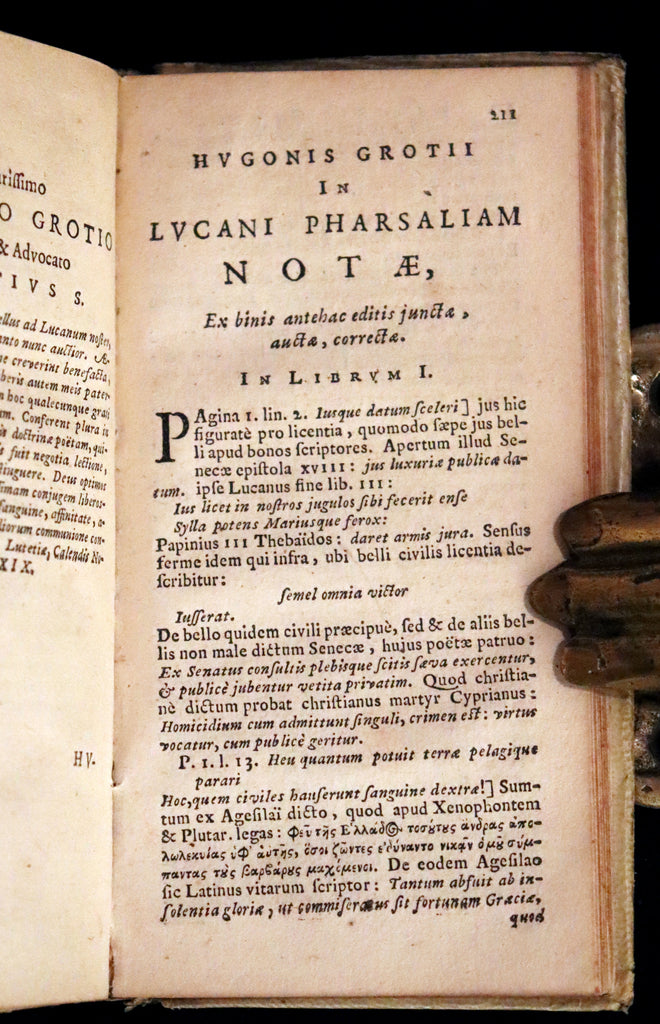 rissimo
O GROTIO
& Advocato
TIVS S.
ellus ad Lucanum nostro,
anto nunc auctior. Æ-
ne creverint benefacta,
beris autem meis pater-
n hoc qualecunque grati
um. Conferent plura in
is doctrinæ poëtam, qui-
is fuit negotia lectione,
tinguere. Deus optimus
simam conjugem liberos-
sanguine, affinitate, a-
liorum communione con-
Lutetiæ, Calendis No-
XIX.
HV-
211
HVGONIS GROTII
IN
LVCANI PHARSALIAM
NOTÆ,
Ex binis antehac editis junctæ,
auctæ, correctæ.
IN LIBRVM I.
PAgina 1. lin. 2. Iusque datum sceleri] jus hic
figuratè pro licentia, quomodo sæpe jus bel-
li apud bonos scriptores. Apertum illud Se-
necæ epistola XVIII: jus luxuriæ publicæ da-
tum. ipse Lucanus fine lib. III:
Ius licet in nostros jugulos sibi fecerit ense
Sylla potens Mariusque ferox:
Papinius III Thebaïdos: daret armis jura. Sensus
ferme idem qui infra, ubi belli civilis licentia de-
scribitur:
semel omnia victor
Iusserat.
De bello quidem civili præcipuè, sed & de aliis bel-
lis non male dictum Senecæ, hujus poëtæ patruo:
Ex Senatus consultis plebisque scitis sæva exercentur,
& publicè jubentur vetita privatim. Quod christia-
nè dictum probat christianus martyr Cyprianus:
Homicidium cum admittunt singuli, crimen est: virtus
vocatur, cum publicè geritur.
P. 1. l. 13. Heu quantum potuit terræ pelagique
parari
Hoc, quem civiles hauserunt sanguine dextræ!] Sum-
tum ex Agesilaï dicto, quod apud Xenophontem
& Plutar. legas: Φεῦ τῆς Ἑλλάδος τοσούτους ἄνδρας ἀπο-
λωλεκυίας ὑφ' αὑτῆς, ὅσοι ζῶντες ἐδύναντο νικᾶν ὁμοῦ σύμ-
παντας τοὺς βαρβάρους μαχόμενοι. De eodem Agesilao
sic Latinus vitarum scriptor: Tantum abfuit ab in-
solentia gloriæ, ut commiseratus sit fortunam Græciæ,
quod